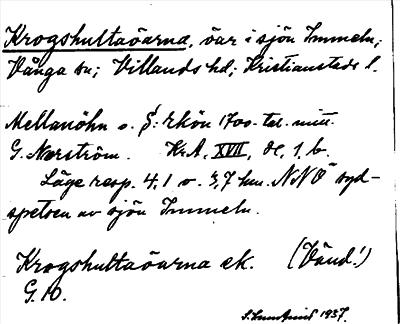 Krogshultaöarna, öar i sjön Immeln;
Vånga sn; Villands hd; Kristianstads l.
Mellanöhn o. 1700-tal. mitt
G. Norström. Kr.A. XVII, 1, b.
Läge resp. 4,1 o. 3,7 km. NNÖ syd-
spetsen av sjön Immeln.
Krogshultaöarna ek. (Vänd!)
G. 10.
1937.